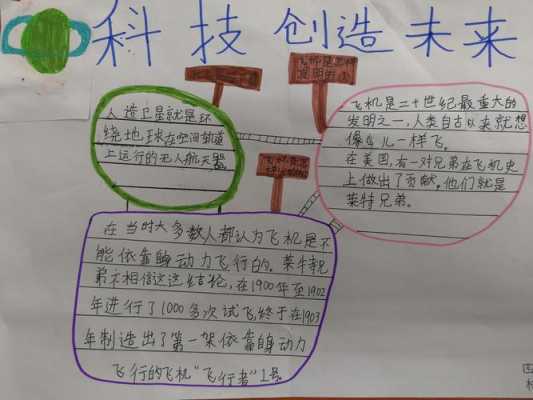 科技创造未来
飞机是怎样
发明的
人造卫星就是环
绕地球在空间轨道
上运行的无人航天器。
飞机是二十世纪最重大的
发明之一，人类自古以来就想
像鸟儿一样飞。
在美国，有一对兄弟在飞机史
上做出了贡献。他们就是
莱特兄弟。
在当时大多数人都认为飞机是不
能依靠自身动力飞行的。莱特兄
弟不相信这这结论，在1900年至1902
年进行了1000多次试飞，终于在1903
年制造出了第一架依靠自身动力
飞行的飞机"飞行者"1号。